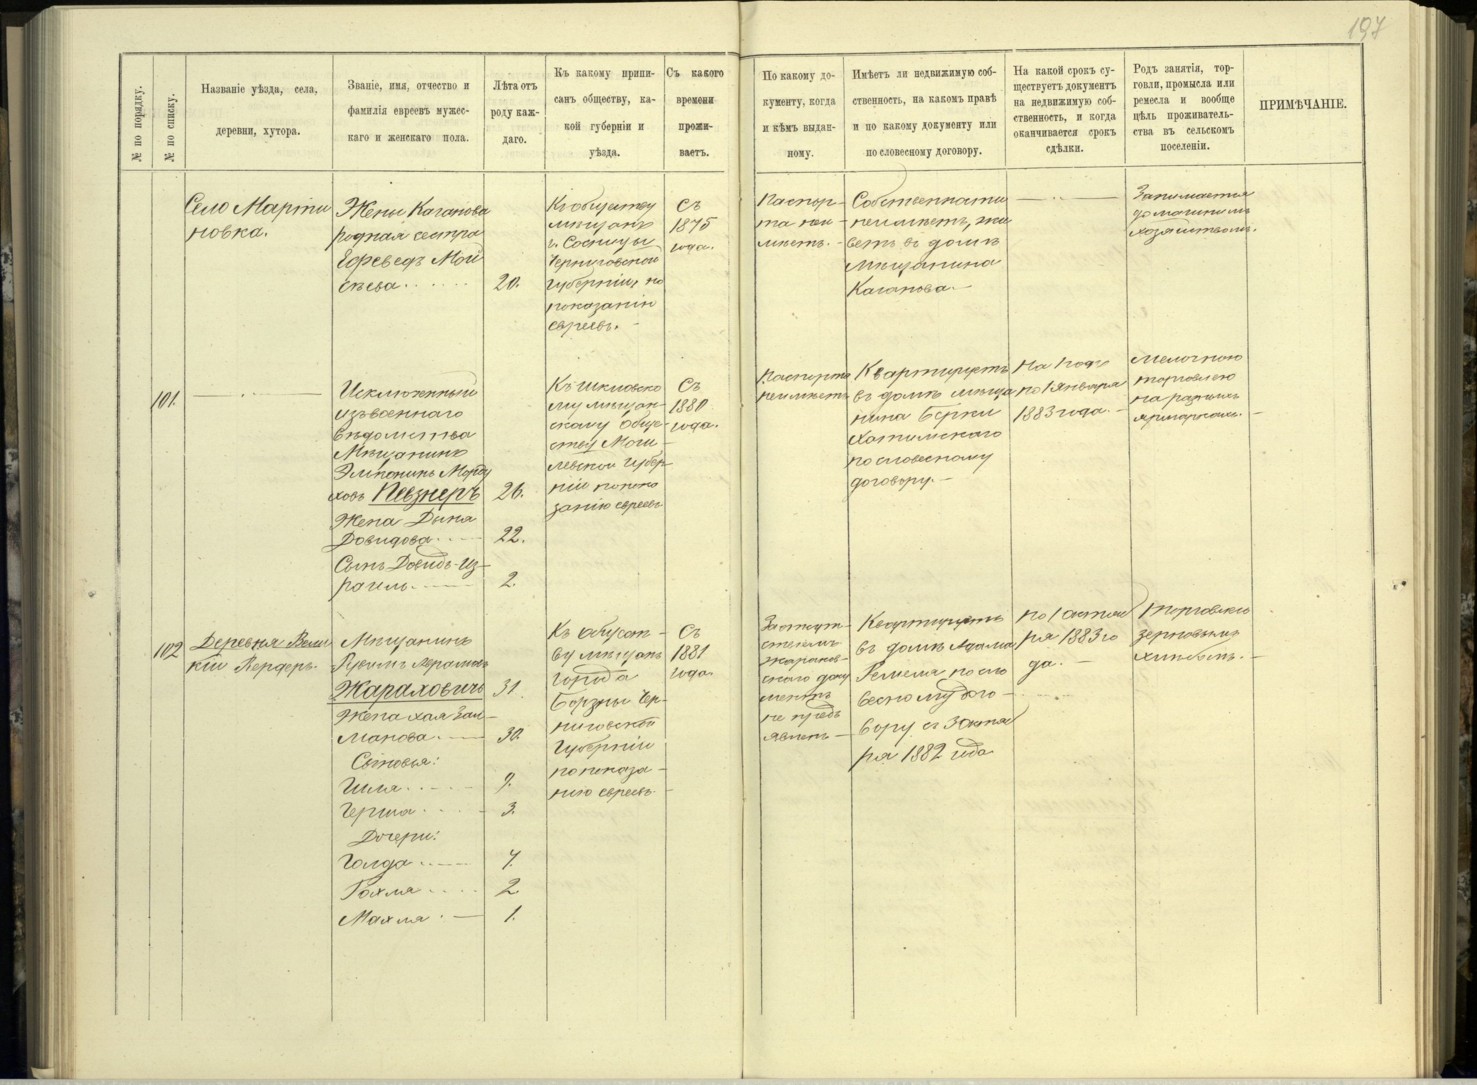 197
№ по порядку.
№ по списку.
Названіе уѣзда, села,
деревни, хутора.
Званіе, имя, отчество и
фамилія евреевъ мужес-
каго и женскаго пола.
Лѣта отъ
роду каж-
даго.
Къ какому припи-
санъ обществу, ка-
кой губерніи и
уѣзда.
Съ какого
времени
прожи-
ваетъ.
По какому до-
кументу, когда
и кѣмъ выдан-
ному.
Имѣетъ ли недвижимую соб-
ственность, на какомъ правѣ
и по какому документу или
по словесному договору.
На какой срокъ су-
ществуетъ документъ
на недвижимую соб-
ственность, и когда
оканчивается срокъ
сдѣлки.
Родъ занятія, тор-
говли, промысла или
ремесла и вообще
цѣль проживатель-
ства въ сельскомъ
поселеніи.
ПРИМѢЧАНІЕ.
Село Марти
новка.
Жены Каганова
родная сестра
Мой
сѣева
20.
Къ обществу
мѣщанъ
г. Сосницы
Черниговской
губерніи, по
показанію
евреевъ.
Съ
1875
года.
Паспор-
та неи-
мѣетъ.
Собственности
неимѣетъ, жи
ветъ въ домѣ
мѣщанина
Каганова.
Занимается
домашнимъ
хозяйствомъ.
101.
Исключенный
изъ военнаго
вѣдомства
Мѣщанинъ
Морду
ховъ Певзнеръ
26.
Жена Дына
Довидова
22.
Сынъ Довидъ-Из-
раиль
2.
Къ Шкловско
му мѣщан-
скому обще-
ству Моги-
левской губер
ніи по пока
занію евреевъ
Съ
1880
года.
Паспорта
неимѣетъ
Квартируетъ
въ домѣ мѣща
нина Берки
Хотимскаго
по словесному
договору.
На годъ
по 1 января
1883 года.
Мелочною
торговлею
на разныхъ
ярмаркахъ.
102
Деревня Вели
кій Вердеръ.
Мѣщанинъ
Рувимъ Абрамовъ
Жараховичъ
31.
Жена Хая Зал-
манова.
30.
Сыновья:
Шля
9.
Герша
3.
Дочери:
Голда
7.
Рохля
2
Махля
1.
Къ обществ-
ву мѣщанъ
города
Борзны Чер-
ниговской
губерніи
по показа-
нію евреевъ
Съ
1881
года.
За отсут-
ствіемъ
Жарахов-
скаго доку
ментъ
не предъ
явленъ
Квартируетъ
въ домѣ Адама
по сло
весному дого-
вору съ 3 октяб
ря 1882 года
по 1 октяб
ря 1883 го
да.
Торговлею
зерновымъ
хлѣбомъ.